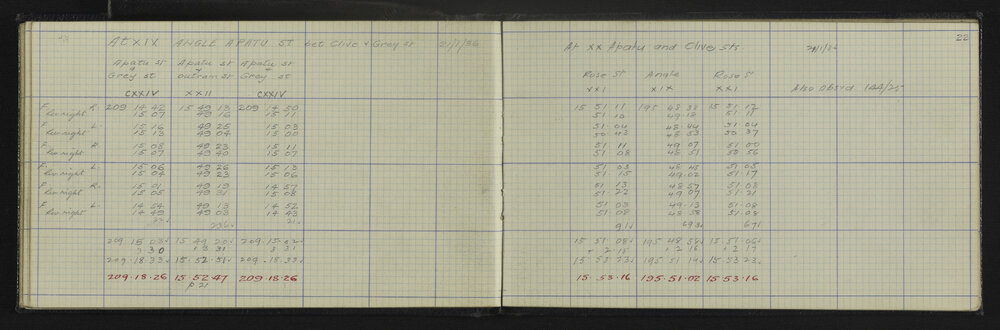 At XIX ANGLE APATU ST bet Clive & Grey st 21/1/26
Apatu st Apatu st Apatu st
& & &
Grey st outram st Grey st
CXXIV XXII CXXIV
F R. 209 14 42 15 49 13 209 14 50
Rev night 15 07 49 16 15 11
F L. 15 16 49 25 15 03
Rev night 15 13 49 04 15 09
F R. 15 08 49 23 15 11
Rev night 15 07 49 40 15 07
F L. 15 06 49 26 15 13
Rev night 15 04 49 23 15 06
F R. 15 01 49 19 14 57
Rev night 15 05 49 31 15 08
F L. 14 54 49 13 14 52
Rev night 14 49 49 03 14 43
209 15 03 15 49 20 209 15 02
3 30 3 31 3 31
209 18 33 15 52 51 209 18 33
209.18.26 15 52 47 209.18.26
P 21
22
At XX Apatu and Clive Sts
Rose St Angle Rose St
XXI XIX XXI Also Obsrd
15 51 11 195 48 38 15 51 12
51 10 49 18 51 11
51 04 48 44 51 04
50 43 48 53 50 37
51 11 49 07 51 00
51 08 48 51 50 56
51 03 48 45 51 05
51 15 49 02 51 17
51 13 48 57 51 08
51 22 49 07 51 21
51 03 49 13 51 08
51 08 48 38 51 08
91 693 67
15 51 08 195 48 58 15 51 06
+ 2 15 2 16 2 17
15 53 23 195 51 14 15 53 23
15.53.16 195.51.02 15 53 16